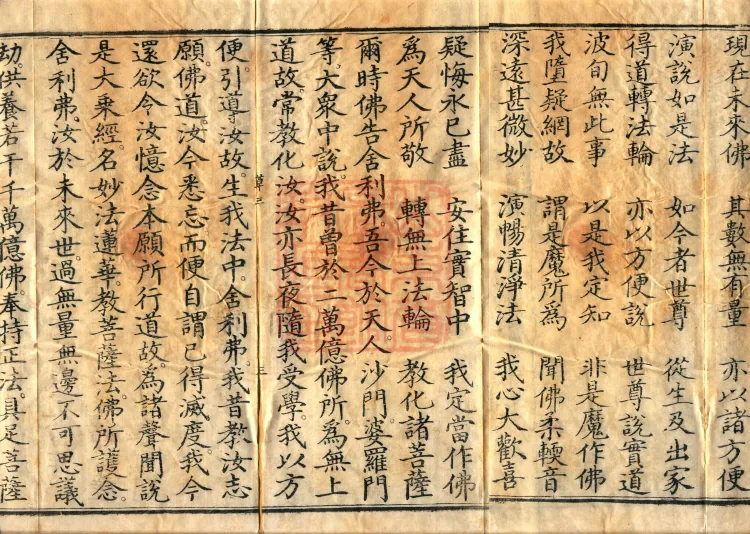 現在未來佛 其數無有量 亦以諸方便
演說如是法 如今者世尊 從生及出家
得道轉法輪 亦以方便說 世尊說實道
波旬無此事 以是我定知 非是魔作佛
我墮疑網故 謂是魔所為 聞佛柔軟音
深遠甚微妙 演暢清淨法 我心大歡喜
疑悔永已盡 安住實智中 我定當作佛
為天人所敬 轉無上法輪 教化諸菩薩
爾時佛告舍利弗。吾今於天人沙門婆羅門
等。大眾中說。我昔曾於二萬億佛所。為無上
道故。常教化汝。汝亦長夜隨我受學。我以方
草三 三
便。引導汝故。生我法中。舍利弗。我昔教汝志
願佛道。汝今悉忘。而便自謂已得滅度。我今
還欲令汝憶念本願所行道故。為諸聲聞說
是大乘經。名妙法蓮華。教菩薩法。佛所護念。
舍利弗。汝於未來世。過無量無邊不可思議
劫。供養若干千萬億佛。奉持正法。具足菩薩